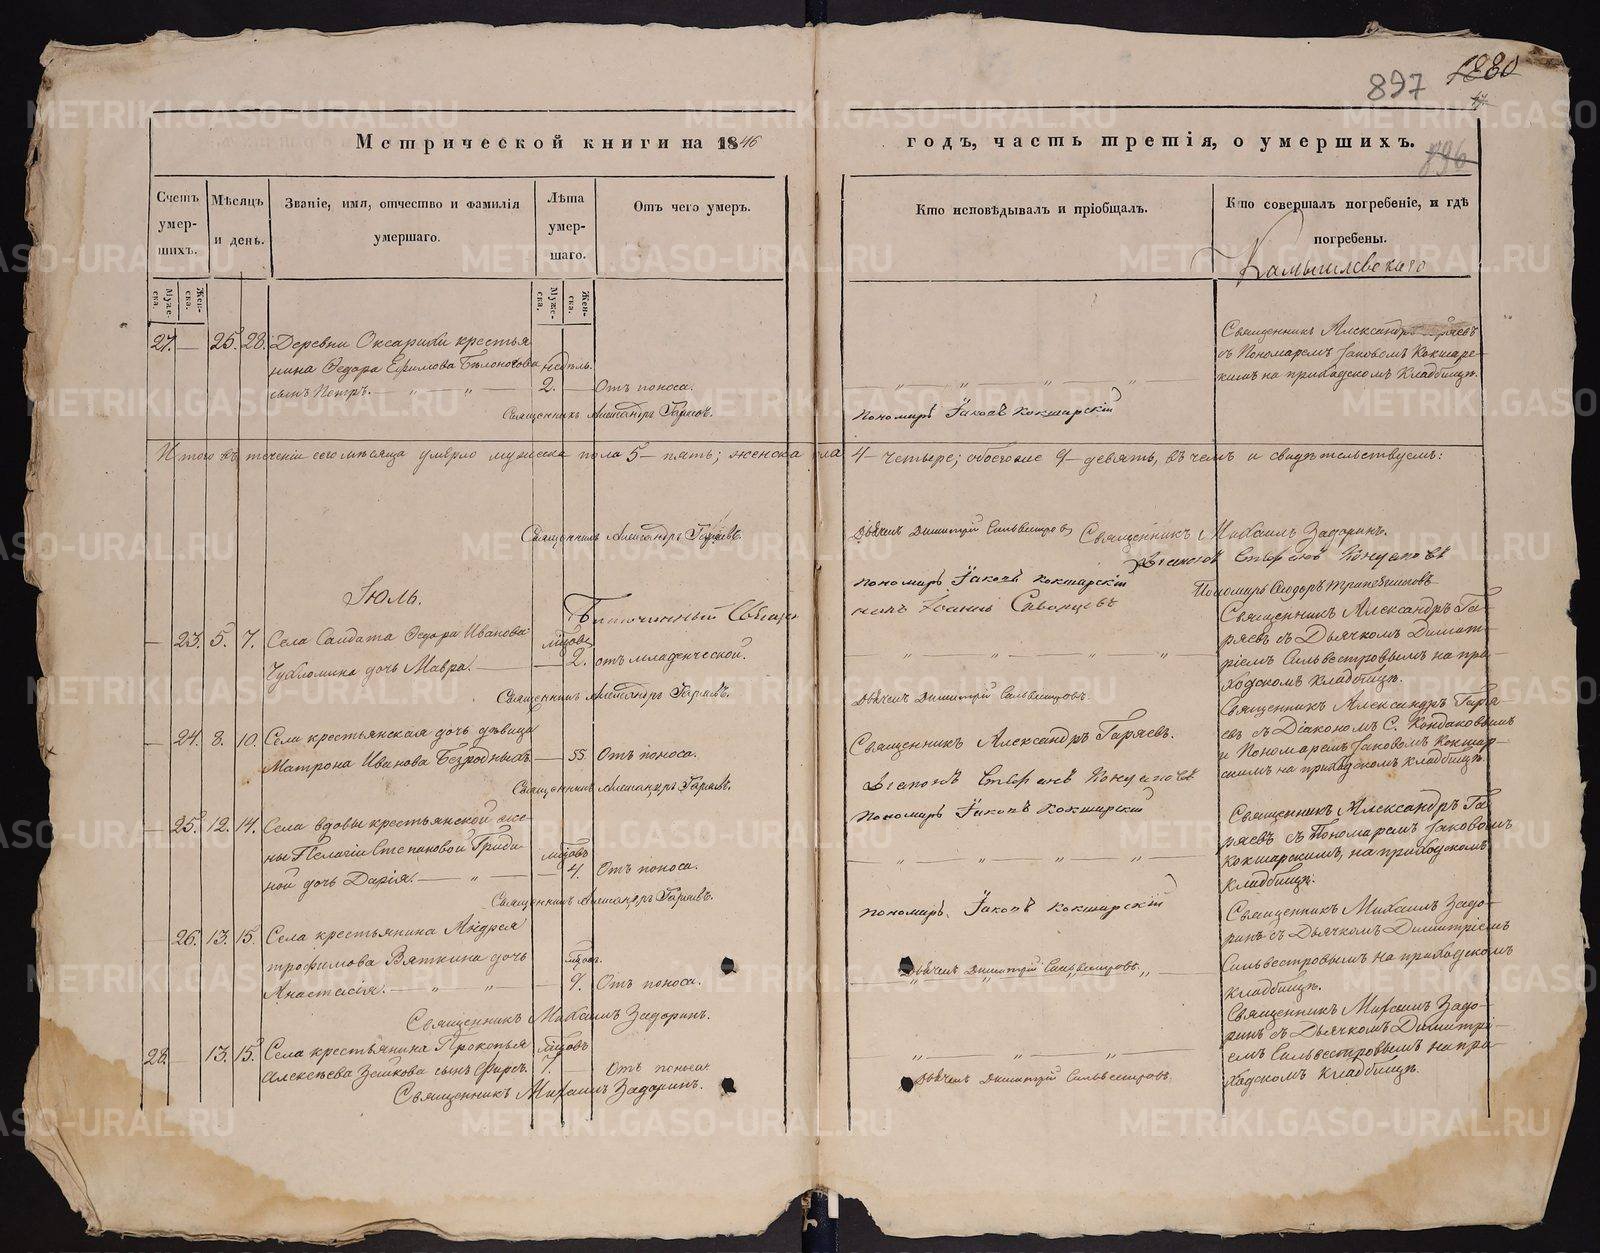 897
1880
896
Метрической книги на 1846
годъ, часть третія, о умершихъ.
Счетъ умер-шихъ.
Мѣсяцъ и день.
Званіе, имя, отчество и фамилія умершаго.
Лѣта умер-шаго.
Отъ чего умеръ.
Кто исповѣдывалъ и пріобщалъ.
Кто совершалъ погребеніе, и гдѣ погребены.
Камышловскаго
Муже-ска.
Жен-ска.
Муже-ска.
Жен-ска.
27. — 25. 28. Деревни Оксарихи крестья
нина Ѳедора Ефимова Бѣлоногова недѣль.
сынъ Петръ. — „ „ 2. — Отъ поноса.
Священникъ Александръ Гаряевъ.
Пономарь Іаковъ Кокшарскій
Священникъ Александръ Гаряевъ
съ Пономаремъ Іаковомъ Кокшарс-
кимъ на приходскомъ Кладбищѣ.
Итого въ теченіи сего мѣсяца умерло мужеска пола 5 — пять; женска пола 4 — четыре; обоего же 9 — девять, въ чемъ и свидѣтельствуемъ:
Священникъ Александръ Гаряевъ.
Дьячекъ Димитрій Сильвестровъ
Священникъ Михаилъ Задоринъ.
Діаконъ Стефанъ Кондаковъ
Пономарь Іаковъ Кокшарскій
Пономарь Ѳедоръ
Іюль.
Благочинный Священ
никъ Іоаннъ
— 23. 5. 7. Села Солдата Ѳедора Иванова мѣсяцевъ
Чухломина дочь Мавра. — 2. отъ младенческой.
Священникъ Александръ Гаряевъ.
Дьячекъ Димитрій Сильвестровъ.
Священникъ Александръ Га-
ряевъ съ Дьячкомъ Димит-
ріемъ Сильвестровымъ на при-
ходскомъ Кладбищѣ.
— 24. 8. 10. Села крестьянская дочь дѣвица
Матрона Иванова Безродныхъ — 55. Отъ поноса.
Священникъ Александръ Гаряевъ.
Священникъ Александръ Гаряевъ.
Діаконъ Стефанъ Кондаковъ
Пономарь Іаковъ Кокшарскій
Священникъ Александръ Гаря-
евъ съ Діакономъ С. Кондаковымъ
и Пономаремъ Іаковомъ Кокшар-
скимъ на приходскомъ кладбищѣ.
— 25. 12. 14. Села вдовы крестьянской же-
ны Пелагіи Степановой Гриби-
ной дочь Дарія. — „ — 4. Отъ поноса.
Священникъ Александръ Гаряевъ.
Пономарь Іаковъ Кокшарскій
Священникъ Александръ Га-
ряевъ съ Пономаремъ Іаковомъ
Кокшарскимъ, на приходскомъ
Кладбищѣ.
— 26. 13. 15. Села крестьянина Андрея
Трофимова Вяткина дочь
Анастасія. — „ — „ — 9. Отъ поноса.
Священникъ Михаилъ Задоринъ.
Дьячекъ Димитрій Сильвестровъ.
Священникъ Михаилъ Задо-
ринъ съ Дьячкомъ Димитріемъ
Сильвестровымъ на приходскомъ
Кладбищѣ.
28. — 13. 15. Села крестьянина Прокопья мѣсяцовъ
Алексѣева Зенкова сынъ Фирсъ. 7. — Отъ поноса.
Священникъ Михаилъ Задоринъ.
Дьячекъ Димитрій Сильвестровъ.
Священникъ Михаилъ Задо-
ринъ съ Дьячкомъ Димитрі-
емъ Сильвестровымъ на при-
ходскомъ Кладбищѣ.
METRIKI.GASO-URAL.RU